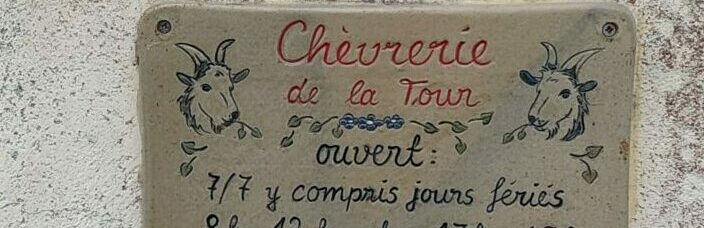 Chèvrerie
de la Tour
ouvert :
7/7 y compris jours fériés